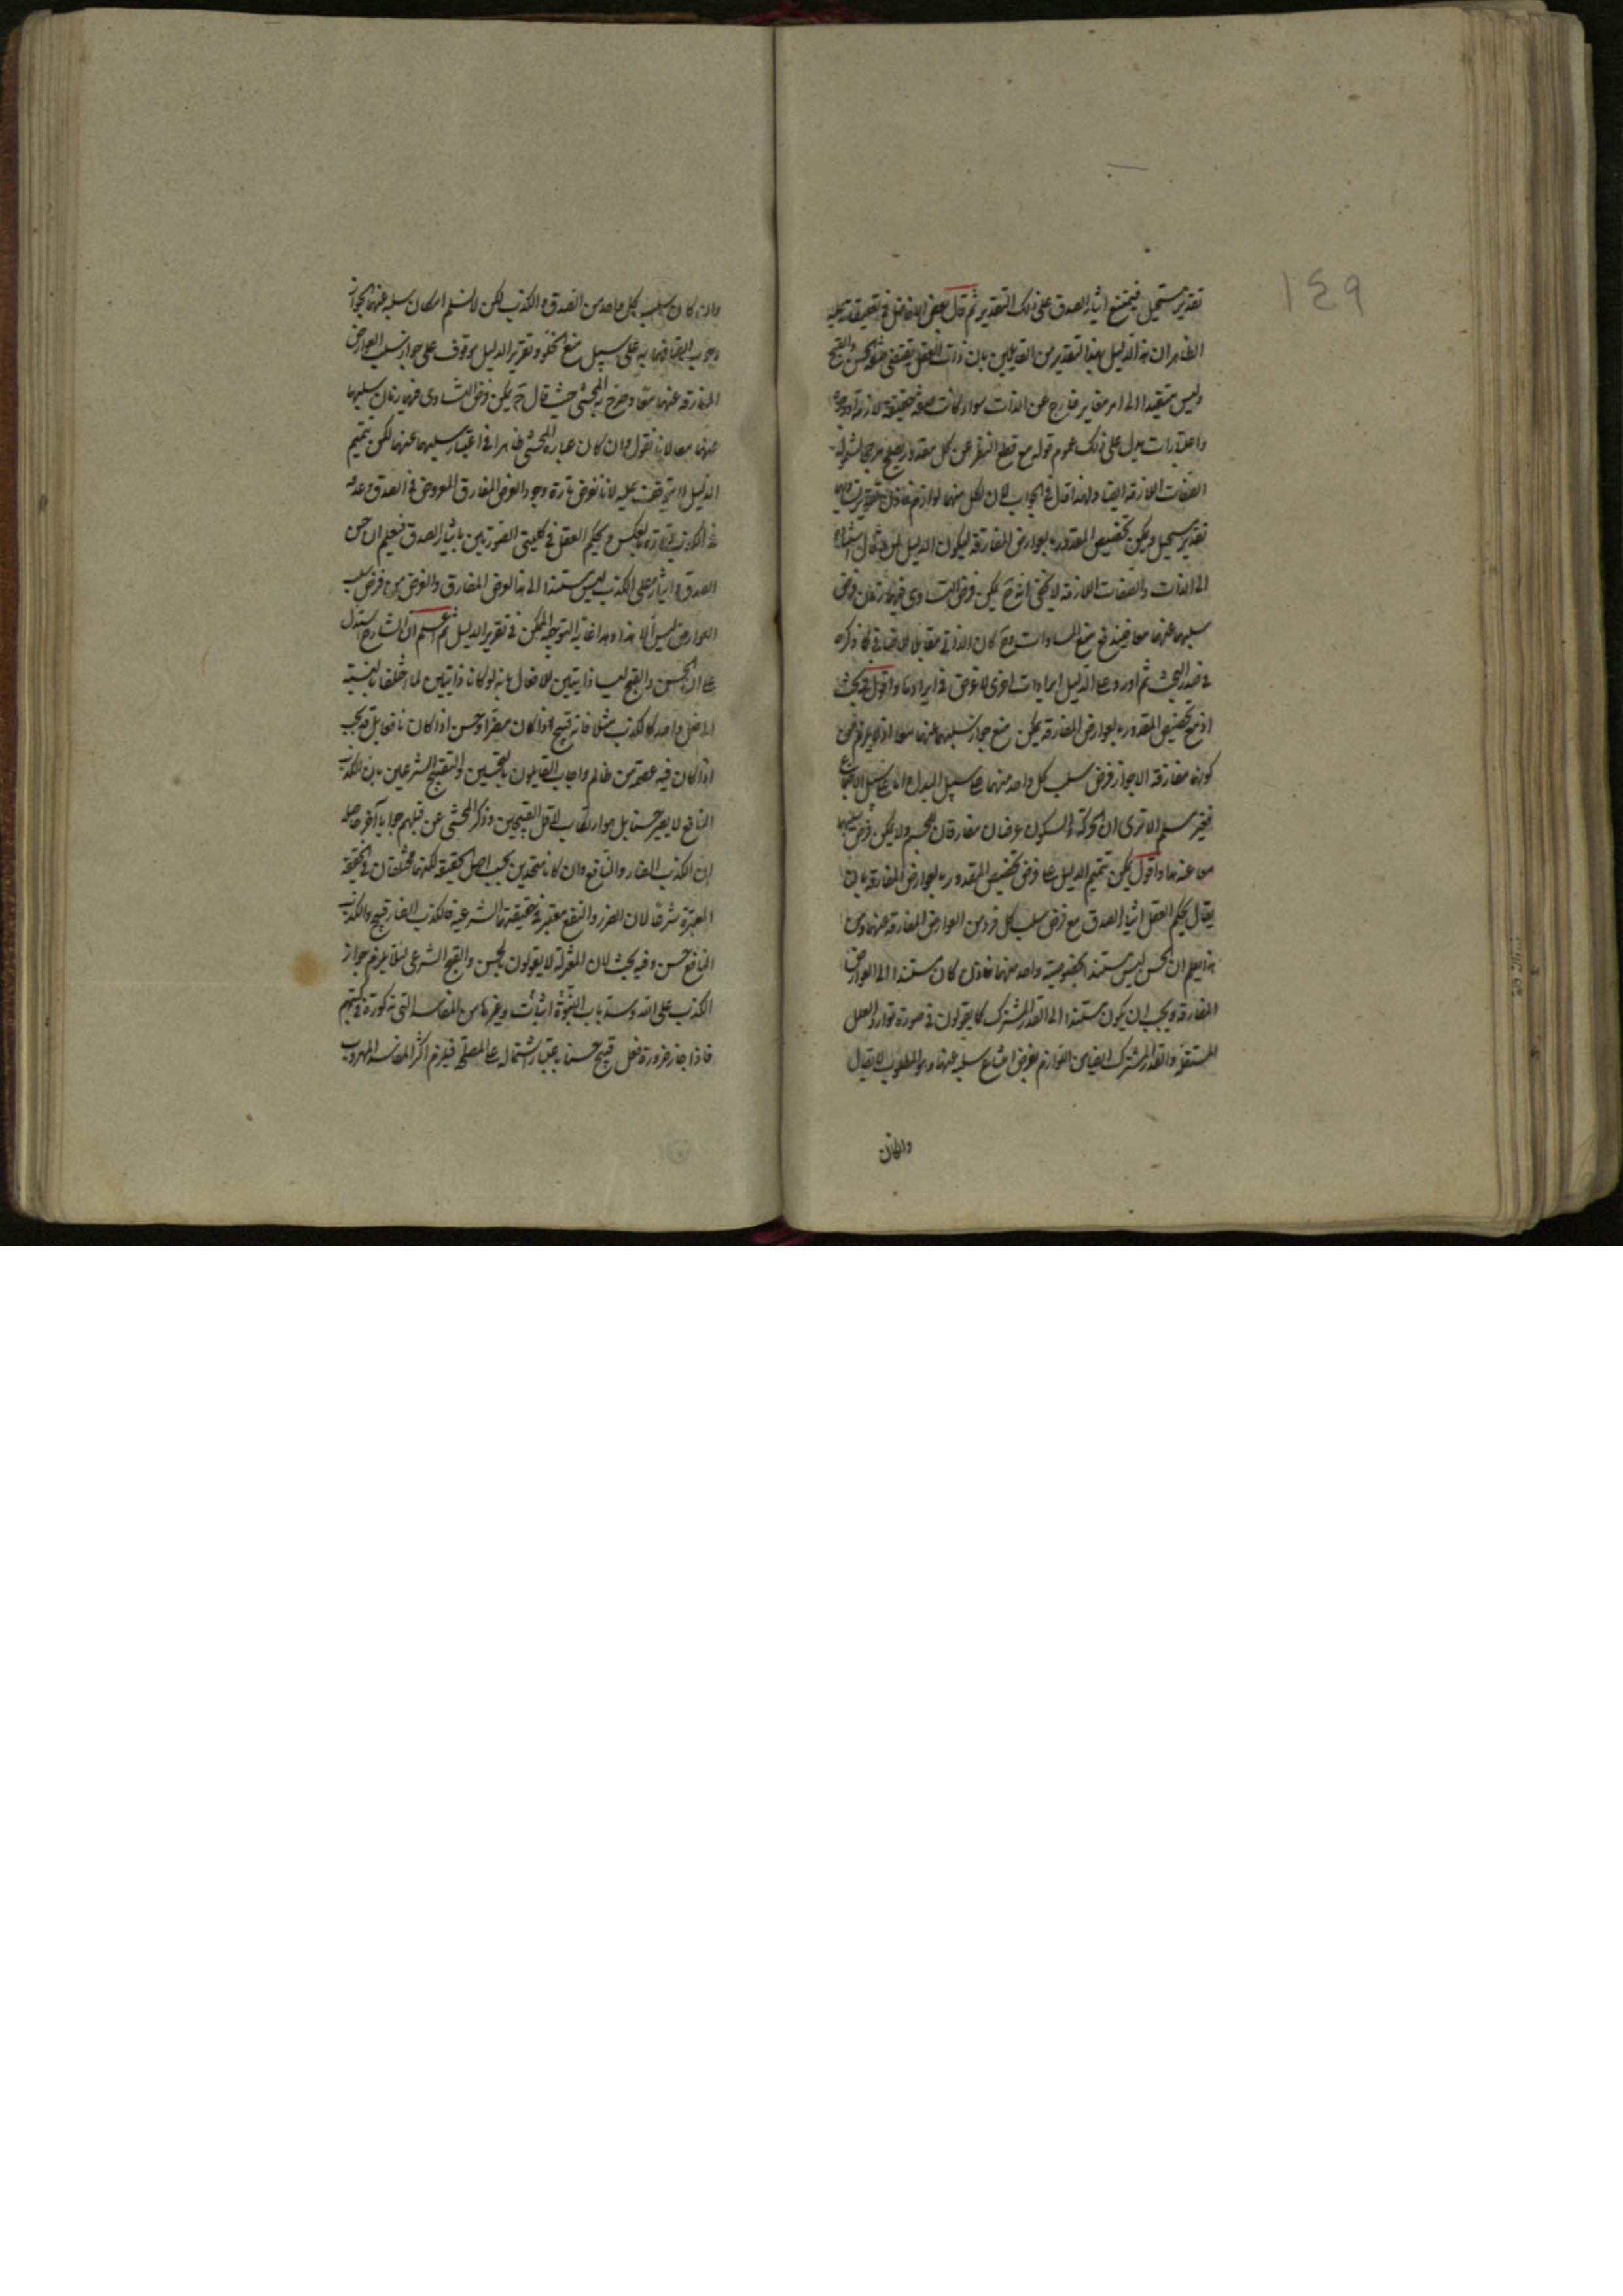 ١٤٩
تقدير مستحيل فيمتنع ايثار الصدق على ذلك التقدير ثم قال بعض الافاضل في تعليقاته عليه
الظاهر ان هذا الدليل بهذا التقدير من القايلين بان ذات الفعل يقتضي الحسن والقبح
وليس مستندا الى امر مغاير خارج عن الذات سواء كانت صفة حقيقية لازمة او وجوه
واعتبارات يدل على ذلك عموم قوله مع قطع النظر عن كل مقدور يصلح مرجحا لشموله
الصفات اللازمة ايضا ولهذا قال في الجواب لان لكل منهما لوازم فاذن تقدير تساويهما
تقدير مستحيل ويمكن تخصيص المقدور بالعوارض المفارقة ليكون الدليل لمن قال استناده
الى الذات والصفات اللازمة لا يخفى انه ح يمكن فرض التساوي فيهما فرض
سلبهما عنهما معا فيندفع منع المساوات وح كان الذاتي مقابل للاضافي كما ذكره
في صدر البحث ثم اورد على الدليل ايرادات اخرى لا غرض في ايرادها واقول فيه بحث
اذ مع تخصيص المقدور بالعوارض المفارقة يمكن منع جواز سلبهما عنهما معا اذ لا يلزم من
كونها مفارقة الا جواز فرض سلب كل واحد منهما على سبيل البدل واما على سبيل الاجتماع
فغير مسلم الا ترى ان الحركة والسكون عرضان مفارقان للجسم ولا يمكن فرض سلبهما
معا عنه واقول يمكن تتميم الدليل على فرض تخصيص المقدور بالعوارض المفارقة بان
يقال يحكم العقل ايثار الصدق مع فرض سلب كل فرد من العوارض المفارقة عنهما ومن
هذا يعلم ان الحسن ليس مستندا بخصوصية واحد منهما فاذن كان مستندا الى العوارض
المفارقة ويجب ان يكون مستندا الى القدر المشترك كما يقولون في صورة توارد العلل
المستقلة والقدر المشترك ايضا من اللوازم لفرض امتناع سلبه عنها وهو المطلوب لا يقال
وان كان
وان كان سلب كل واحد من الصدق والكذب لكن لا نسلم امكان سلبه عنهما لجواز
وجوب اتصافهما به على سبيل منع الخلو وتقرير الدليل موقوف على جواز سلب العوارض
المفارقة عنهما معا وصرح به المحشي حيث قال ح يمكن فرض التساوي فيهما سلبهما
عنهما معا لانا نقول وان كان عبارة المحشي ظاهرا في اعتبار سلبهما عنهما لكن تتميم
الدليل لا يتوقف عليه لانا نفرض تارة وجود العرض المفارق المعروض في الصدق وعدمه
في الكذب وتارة بالعكس ويحكم العقل في كليتي الصورتين بايثار الصدق فيعلم ان حسن
الصدق وايثاره على الكذب ليس مستندا الى هذا العرض المفارق والغرض من فرض سلب
العوارض ليس الا هذا وهذا غاية التوجيه الممكن في تقرير الدليل ثم اعلم ان الشارح استدل
على ان الحسن والقبح ليسا ذاتيتين للافعال بانه لو كانا ذاتيتين لما اختلفا بالنسبة
الى فعل واحد كالكذب مثلا فانه قبيح اذا كان مضرا وحسن اذا كان نافعا بل قد يجب
اذا كان فيه عصمة من ظالم واجاب القايلون بالتحسين والتقبيح الشرعيين بان الكذب
النافع لا يصير حسنا بل هو ارتكاب لاقل القبيحين وذكر المحشي عن قبلهم جوابا آخر حاصله
ان الكذب الضار والنافع وان كانا متحدين بحسب اصل الحقيقة لكنهما مختلفان في الحقيقة
المعتبرة شرعا لان الضرر والنفع معتبر في حقيقتهما الشرعية فالكذب الضار قبيح والكذب
النافع حسن وفيه بحث لان المعتزلة لا يقولون بالحسن والقبح الشرعي لئلا يلزم جواز
الكذب على الله وسد باب النبوة اثبات وغيرها من المفاسد التي مذكورة في كتبهم
فاذا جاز ضرورة فعل قبيح حسنا باعتبار اشتماله على المصلحة فيلزم اكثر المفاسد المهروب